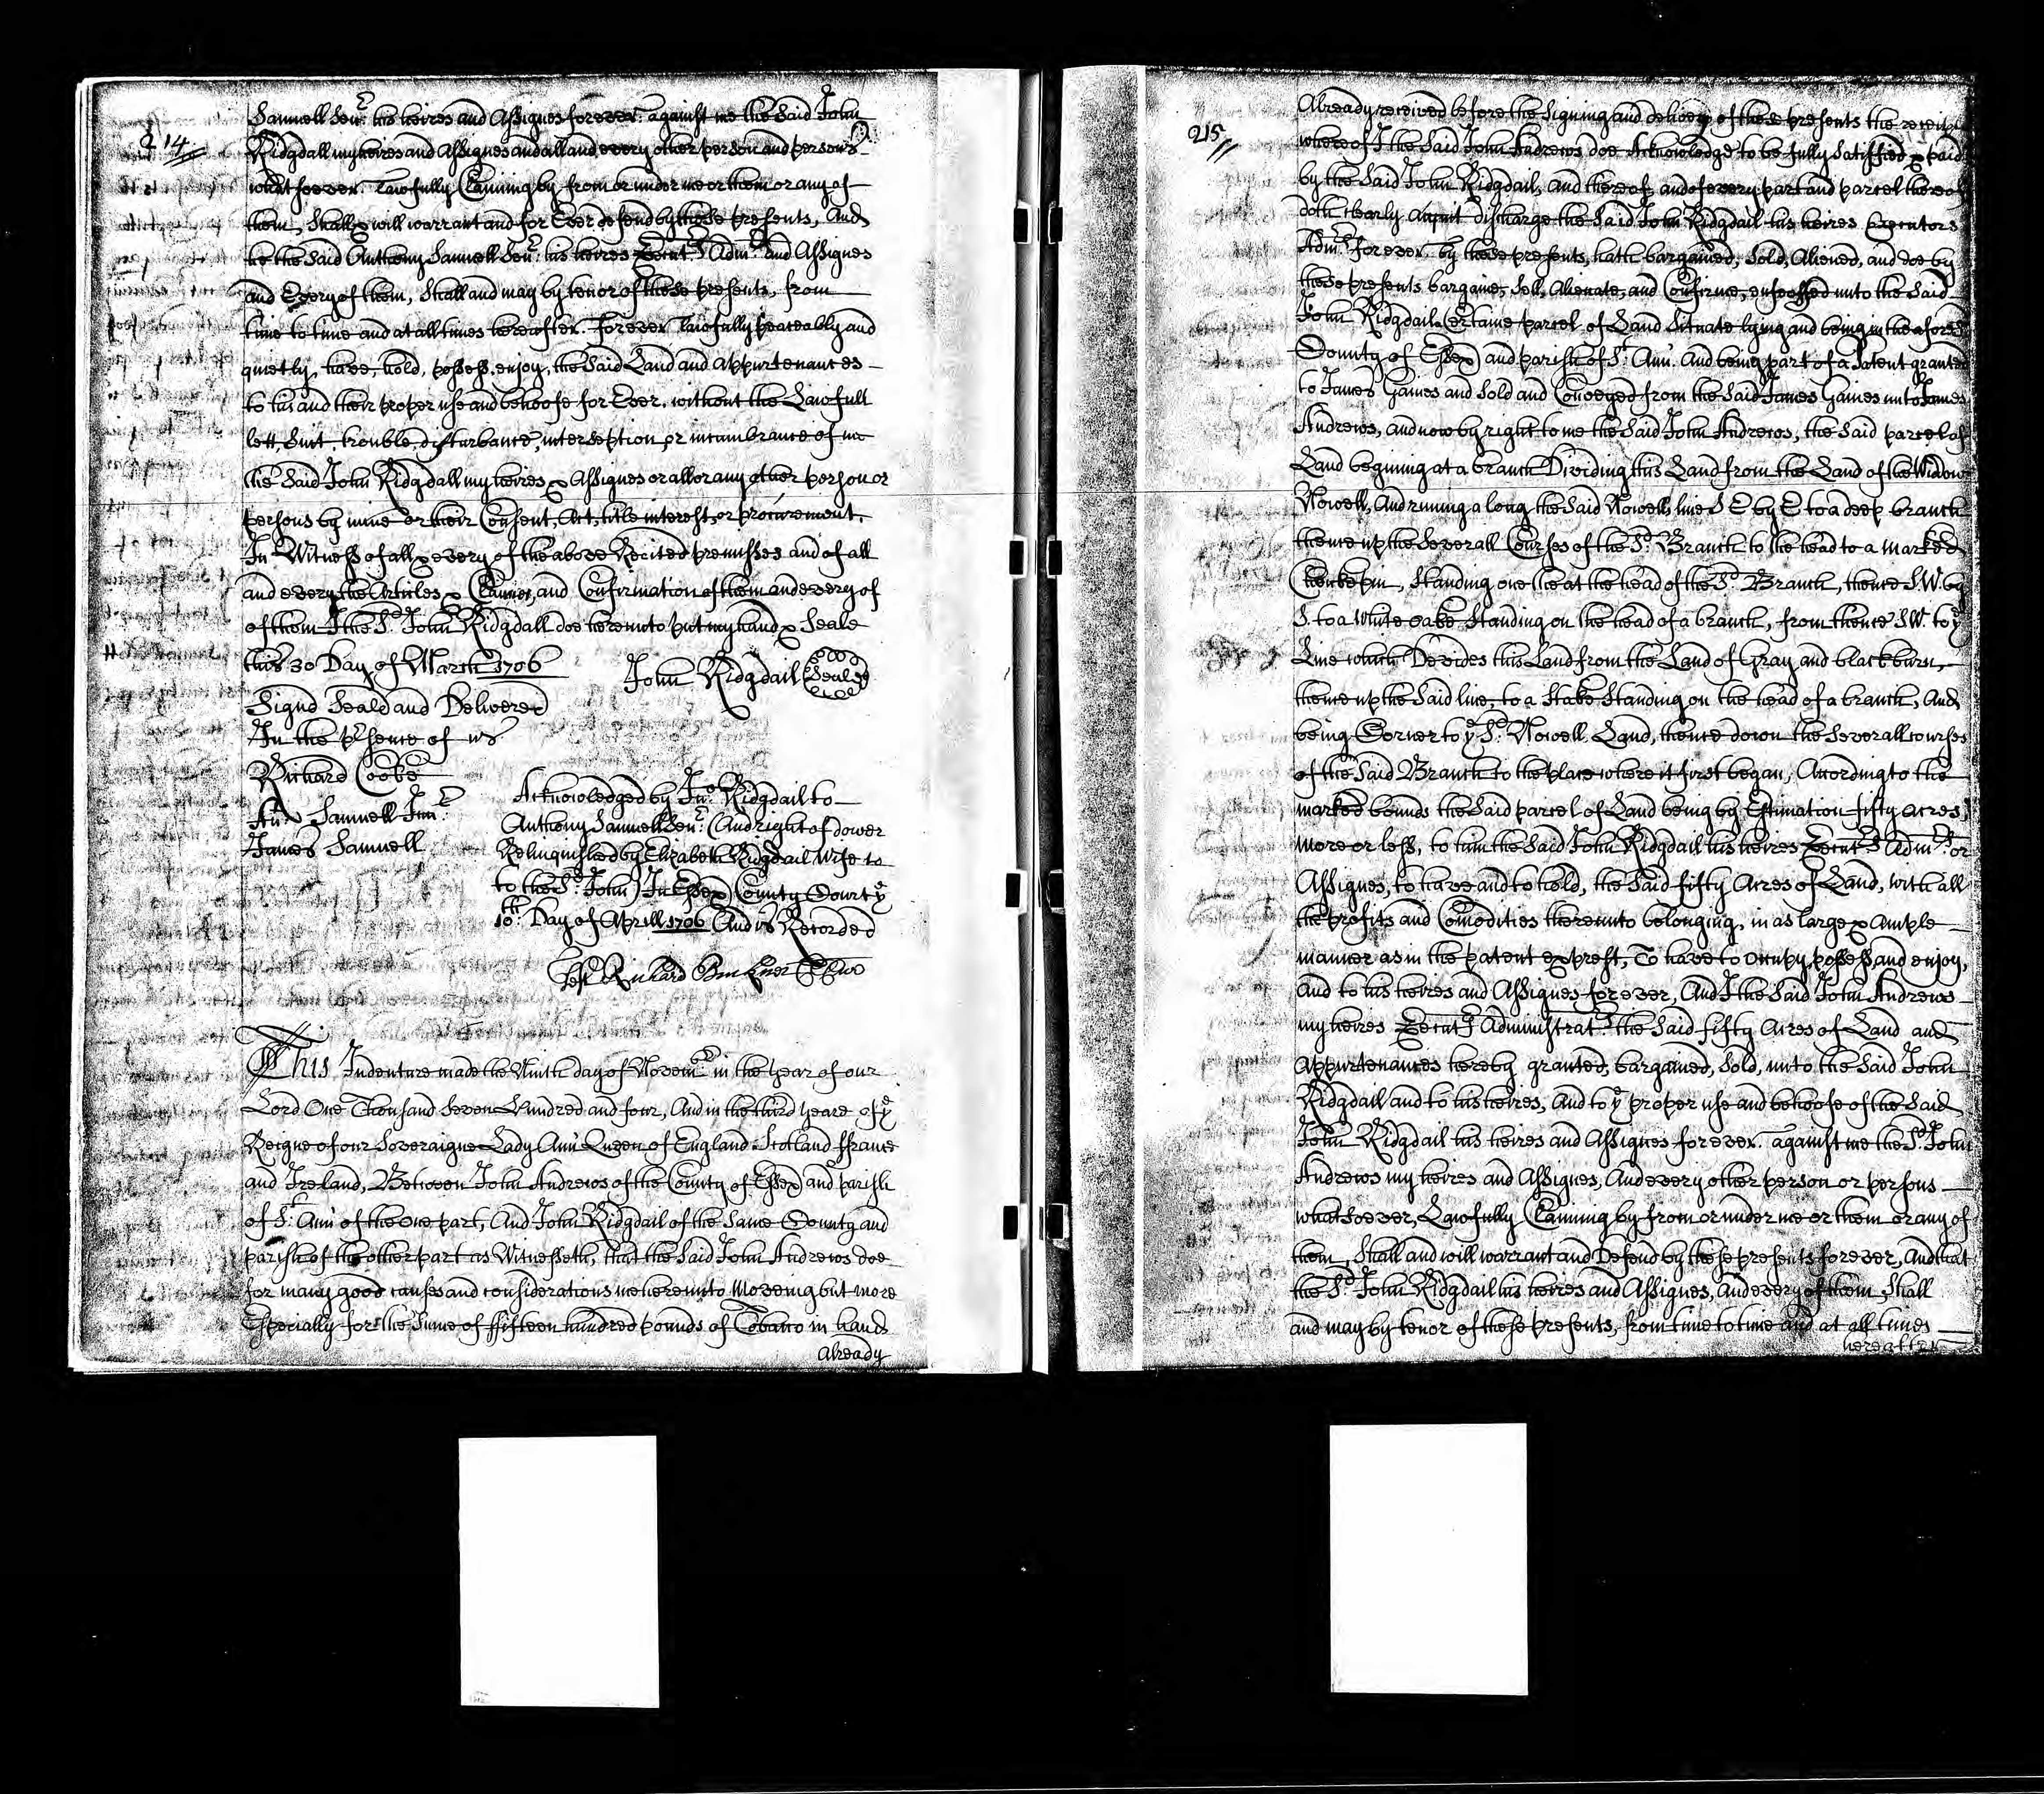 214
Samuell Senr: his heires and Assignes forever. against me the Said John
Ridgdall my heires and Assignes and all and every other person and persons
whatsoever. Lawfully Claiming by from or under me or them or any of
them, Shall & will warrant and for Ever defend by these presents, And
he the Said Anthony Samuell Senr: his heires Execut:rs Admrs: and Assignes
and Every of them, Shall and may by tenor of these presents, from
time to time and at all times hereafter. forever Lawfully peaceably and
quietly, have, hold, possess, enjoy, the Said Land and Appurtenances
to his and their proper use and behoofe for Ever. without the Lawfull
lett, Suit, trouble, disturbance, interseption, or incumbrance of me
the Said John Ridgdall my heires & Assignes or all or any other person or
persons by mine or their Consent, Act, title interest, or procurement.
In Witness of all & every of the above Recited premisses and of all
and every the Articles & Clauses, and Confirmation of them and every of
of them I the Sd. John Ridgdall doe hereunto put my hand & Seale
this 30 Day of March 1706 John Ridgdail Seale
Signd Seald and Delivered
In the prsence of us
Richard Cooke
Ant Samuell Junr:
James Samuell
Acknowledged by Jno: Ridgdail to
Anthony Samuell Senr: (And right of dower
Relinquished by Elizabeth Ridgdail Wife to
to the Sd: John) In Essex County Court ye
10th: Day of Aprill 1706 And is Recorded
Test Richard Buckner Cl Cur
This Indenture made the Ninth day of Novembr in the Year of our
Lord One Thousand Seven Hundred and four, And in the third yeare of ye
Reigne of our Soveraigne Lady Ann Queen of England Scotland ffrance
and Ireland, Between John Andrews of the County of Essex and parish
of St: Ann of the one part, And John Ridgdail of the Same County and
parish of the other part as Witnesseth, that the Said John Andrews doe
for many good causes and considerations me hereunto Moveing but more
Especially for the Sume of ffifteen hundred pounds of Tobacco in hand
already
215
Already received before the Signing and delivery of these presents the receipt
whereof I the Said John Andrews doe Acknowledge to be fully Satisfied & paid
by the Said John Ridgdail, and thereof, and of every part and parcel thereof
doth clearly Acquit discharge the Said John Ridgdail his heires Executors
Admrs: forever. by these presents, hath bargained, Sold, Aliened, and doe by
these presents bargane, Sell, Alienate, and Confirme, enfeoffed unto the Said
John Ridgdail Certaine parcel of Land Situate lying and being in the aforesd
County of Essex and parish of St: Ann. And being part of a Patent granted
to James Gaines and Sold and Conveyed from the Said James Gaines unto James
Andrews, and now by right to me the Said John Andrews, the Said parcel of
Land begining at a branch Dividing this Land from the Land of the Widow
Nowell, And runing a long the Said Nowell, line S E by E to a deep branch
thence up the Severall Courses of the Sd: Branch to the head to a marked
Chenkepin, Standing one the at the head of the Sd: Branch, thence S.W. by
S. to a White oake Standing on the head of a branch, from thence S.W. to ye
Line which Devides this Land from the Land of Gray and blackburn,
thence up the Said line, to a Stake Standing on the head of a branch, And
being Corner to ye Sd: Nowell Land, thence down the Severall courses
of the Said Branch to the place where it first began, According to the
marked bounds the Said parcel of Land being by Estimation fifty acres,
more or less, to him the Said John Ridgdail his heires Execut:rs Admrs: or
Assignes, to have and to hold, the Said fifty Acres of Land, with all
the profits and Comodities thereunto belonging, in as large & Ample
manner as in the patent exprest, To have to Occupy, possess, and enjoy,
And to his heires and Assignes forever, And I the Said John Andrews
my heires Execut:rs Administrat:rs the Said fifty Acres of Land and
Appurtenances hereby granted, bargained, Sold, unto the Said John
Ridgdail and to his heires, And to ye proper use and behoofe of the Said
John Ridgdail his heires and Assignes forever. against me the Sd: John
Andrews my heires and Assignes, And every other person or persons
whatsoever, Lawfully Claiming by from or under me or them or any of
them, Shall and will warrant and Defend by these presents forever, And that
the Sd: John Ridgdail his heires and Assignes, And every of them, Shall
and may by tenor of these presents, from time to time and at all times
hereafter